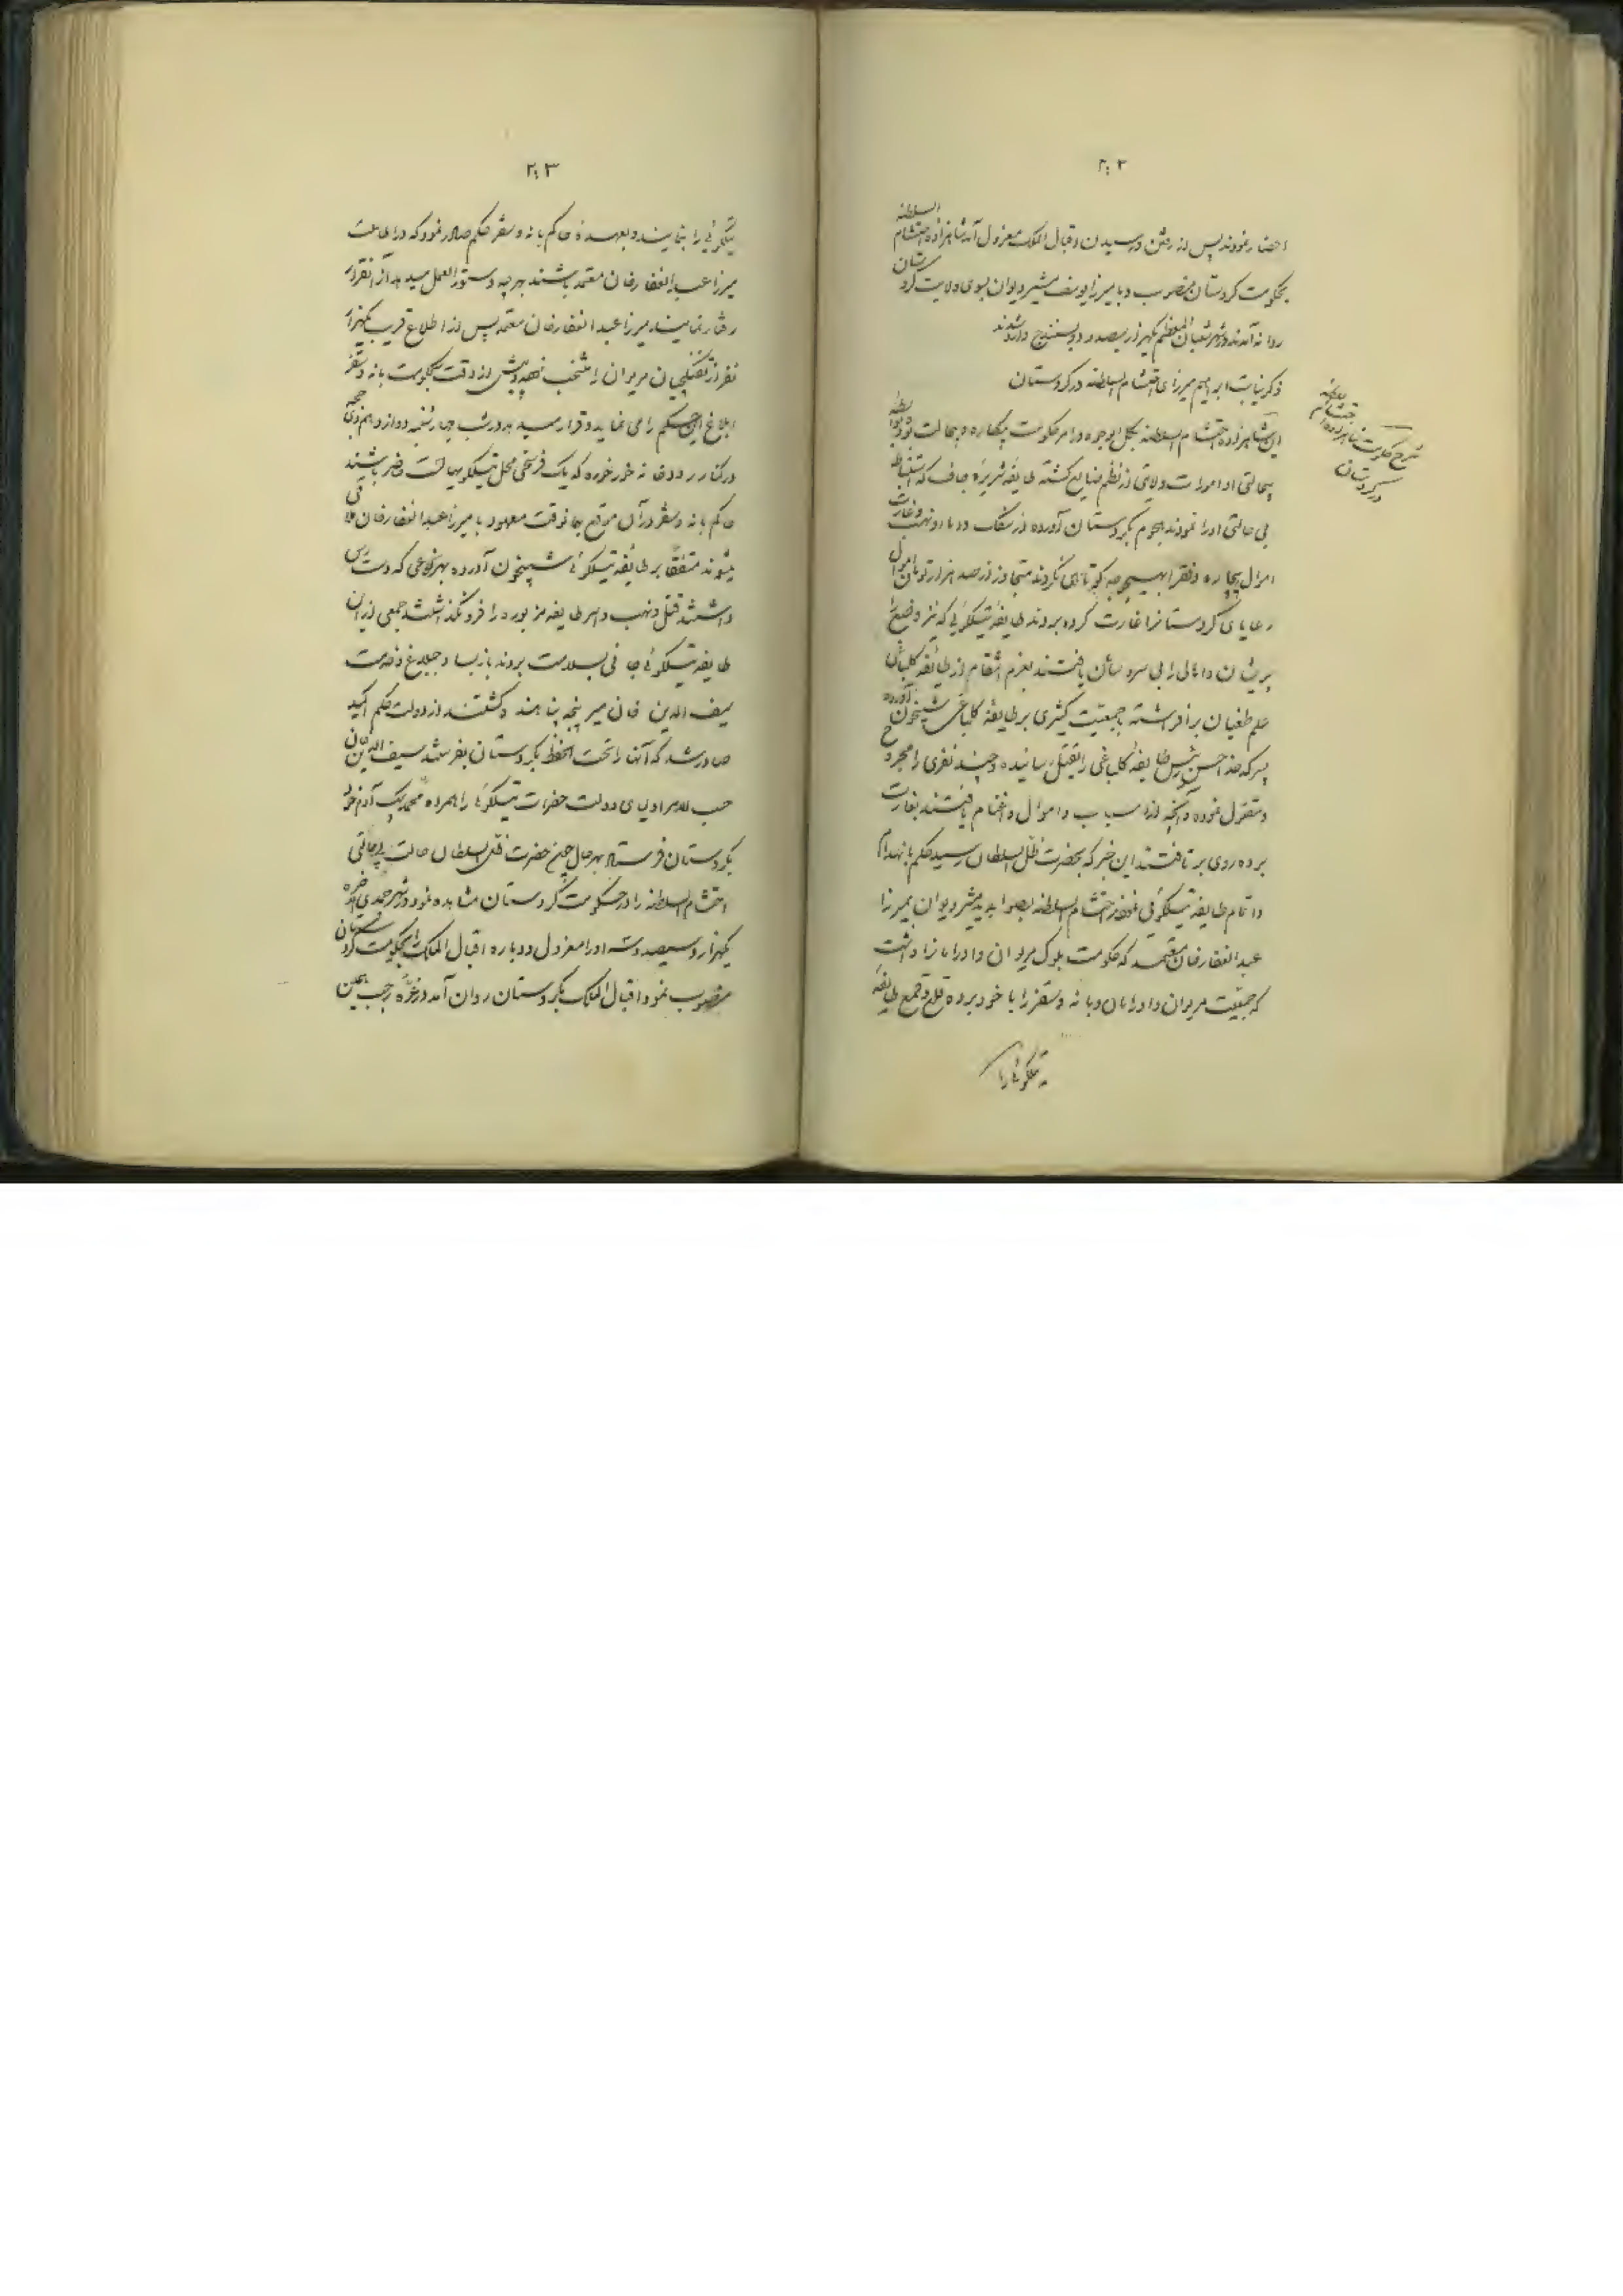 ۲۰۲
احضار نمودند پس از رفتن و رسیدن اقبال الملک معزول آمد شاهزاده احتشام السلطنه
بحکومت کردستان منصوب و با میرزا یوسف مشیر دیوان بسوی ولایت کردستان
روانه آمدند در شهر شعبان المعظم یکهزار و سیصد و دو بسنندج وارد شدند
ذکر نیابت ابراهیم میرزای احتشام السلطنه در کردستان
شرح حکومت شاهزاده احتشام السلطنه
در کردستان
این شاهزاده احتشام السلطنه بکل الوجوه در امر حکومت بیکاره و بیحالت بود بواسطه
بیحالتی او امورات ولایتی از نظم ضایع گشته طایفه شریره جاف که استنباط
بی حالتی او را نمودند هجوم بکردستان آورده از سفک دماء و نهب و غارت
اموال بیچاره و فقرا بهیچوجه کوتاهی نکردند متجاوز از صد هزار تومان اموال
رعایای کردستانرا غارت کرده بردند طایفه تیلکوئی که نیز وضع را
پریشان و اهالی را بی سر و سامان یافتند بعزم انتقام از طایفه کلباغی
علم طغیان برافراشته جمعیت کثیری بر طایفه کلباغی شبیخون آورده
پسر که خدا حسن رئیس طایفه کلباغی را بقتل رسانیده و چند نفری را مجروح
و مقتول نموده و آنچه از اسباب و اموال و اغنام یافتند بغارت
برده روی برتافتند این خبر که بحضرت ظل السلطان رسید حکم بانهدام
و اتمام طایفه تیلکوئی نمود احتشام السلطنه بصوابدید مشیر دیوان بمیرزا
عبدالغفار خان معتمد که حکومت بلوک مریوان و اورامانرا داشت
که جمعیت مریوان و اورامان و بانه و سقز را با خود برده قلع و قمع طایفه
تیلکوئی را
۲۰۳
تیلکوئی را بنمایند و بعهده حاکم بانه و سقز حکم صادر نمود که در اطاعت
میرزا عبدالغفار خان معتمد باشند بهر چه دستورالعمل میدهد از آنقرار
رفتار نمایند میرزا عبدالغفار خان معتمد پس از اطلاع قریب یکهزار
نفر از تفنگچیان مریوان را منتخب نموده پیش از وقت بحکومت بانه و سقز
ابلاغ این حکم را می نماید و قرار میدهد در شب چهارشنبه دوازدهم ذی حجه
در کنار رودخانه خورخوره که یک فرسخی محل تیلکو بیهاست حاضر باشند
حاکم بانه و سقز در آن موقع بهمانوقت معهود با میرزا عبدالغفار خان ملاقی
میشوند متفقاً بر طایفه تیلکوئی شبیخون آورده بهر نوعی که دست رس
داشتند قتل و نهب و اسر طایفه مزبوره را فرو نگذاشتند جمعی از این
طایفه تیلکوئی جانی بسلامت بردند بازبساوجبلاغ و خدمت
سیف الدین خان میر پنجه پناهنده گشتند از دولت حکم اکید
صادر شد که آنها را تحت الحفظ بکردستان بفرستد سیف الدین خان
حسب الامر اولیای دولت حضرات تیلکوئی را همراه محمد بیک آدم خود
بکردستان فرستاد بهر حال چون حضرت ظل السلطان حالت بیحالتی
احتشام السلطنه را در حکومت کردستان مشاهده نمود در شهر جمادی الاخره
یکهزار و سیصد و سه او را معزول و دوباره اقبال الملک را بحکومت کردستان
منصوب نمود اقبال الملک بکردستان روان آمد در غره رجب همین